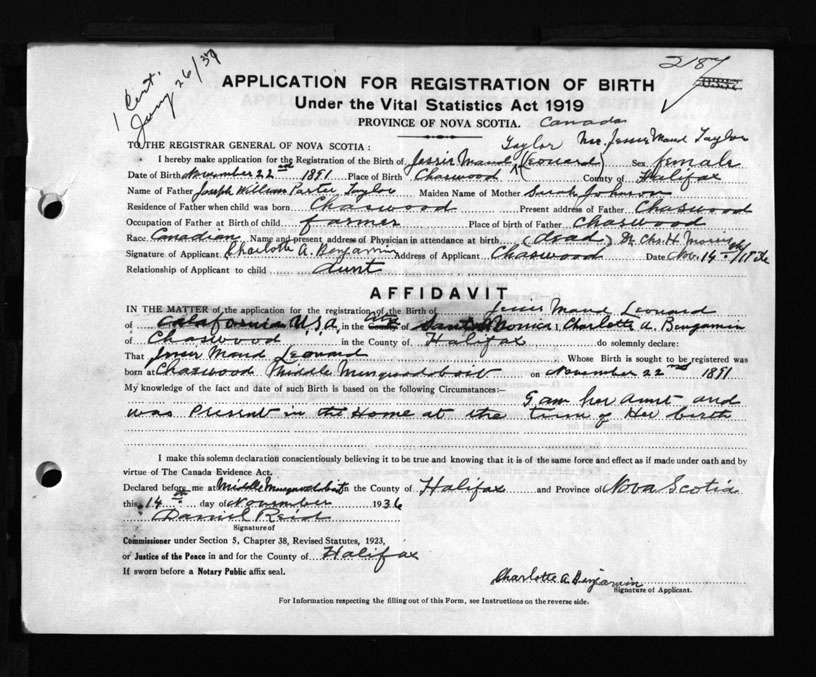 1 Cert.
Jany 26/37
2187
APPLICATION FOR REGISTRATION OF BIRTH
Under the Vital Statistics Act 1919
PROVINCE OF NOVA SCOTIA. Canada
TO THE REGISTRAR GENERAL OF NOVA SCOTIA: Taylor Mrs. Jessie Maud Taylor
I hereby make application for the Registration of the Birth of Jessie Maud (Leonard) Sex female
Date of Birth November 22nd 1891 Place of Birth Chaswood County of Halifax
Name of Father Joseph William Parker Taylor Maiden Name of Mother Sarah Johnson
Residence of Father when child was born Chaswood Present address of Father Chaswood
Occupation of Father at Birth of child farmer Place of birth of Father Chaswood
Race Canadian Name and present address of Physician in attendance at birth (dead) Dr Chs. H.
Signature of Applicant Charlotte A. Benjamin Address of Applicant Chaswood Date Nov. 14th
Relationship of Applicant to child aunt
AFFIDAVIT
IN THE MATTER of the application for the registration of the Birth of Jessie Maud Leonard
of Calafornia U.S.A. in the City County of Santa Monica I, Charlotte A. Benjamin
of Chaswood in the County of Halifax do solemnly declare:
That Jessie Maud Leonard Whose Birth is sought to be registered was
born at Chaswood Middle Musquodoboit on November 22nd 1891
My knowledge of the fact and date of such Birth is based on the following Circumstances:- I am her aunt and
was Present in the Home at the time of Her birth
I make this solemn declaration conscientiously believing it to be true and knowing that it is of the same force and effect as if made under oath and by
virtue of The Canada Evidence Act.
Declared before me at Middle Musquodoboit in the County of Halifax and Province of Nova Scotia
this 14th day of November 1936
Daniel Reid
Signature of
Commissioner under Section 5, Chapter 38, Revised Statutes, 1923,
or Justice of the Peace in and for the County of Halifax
If sworn before a Notary Public affix seal.
Charlotte A. Benjamin
Signature of Applicant.
For Information respecting the filling out of this Form, see Instructions on the reverse side.